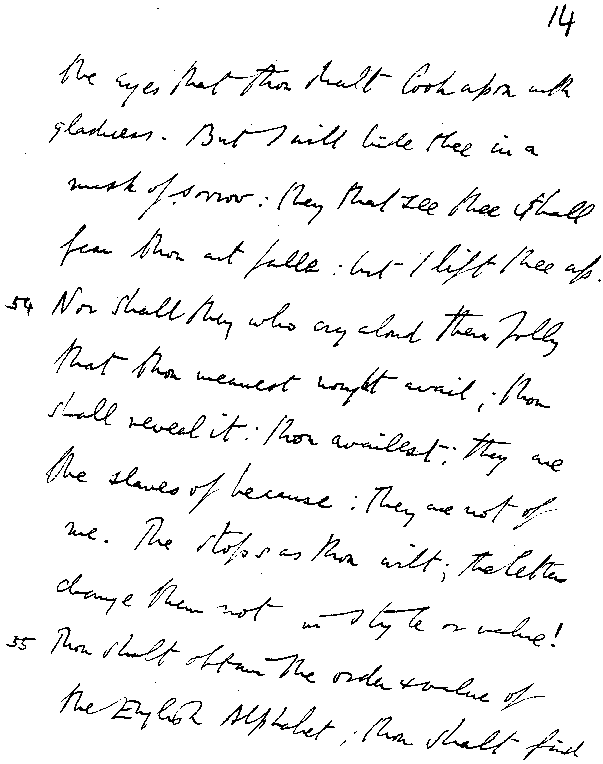 14
the eyes that thou shalt look upon with
gladness. But I will hide thee in a
mask of sorrow: they that see thee shall
fear thou art fallen: but I lift thee up.
54 Nor shall they who cry aloud their folly
that thou meanest nought avail; thou
shall reveal it: thou availest: they are
the slaves of because: They are not of
me. The stops as thou wilt; the letters
change them not in style or value!
55 Thou shalt obtain the order & value of
the English Alphabet; thou shalt find